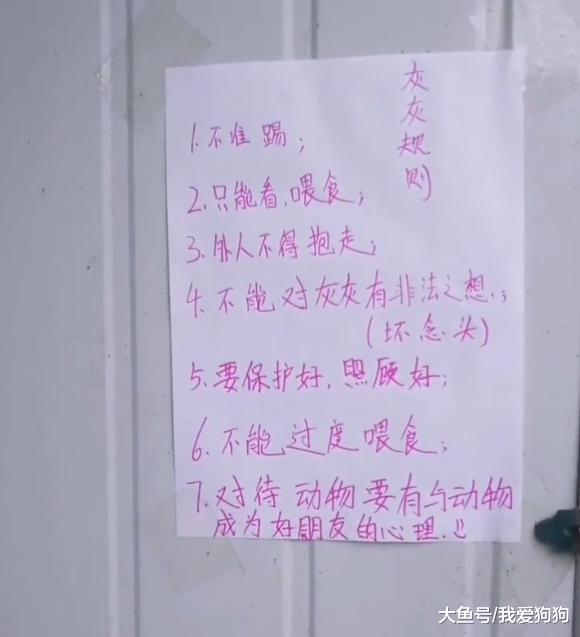 灰灰规则
1.不准踢;
2.只能看.喂食;
3.外人不得抱走;
4.不能对灰灰有非法之想.;
(坏念头)
5.要保护好,照顾好;
6.不能过度喂食;
7.对待动物要有与动物
成为好朋友的心理.!!
大鱼号/我爱狗狗